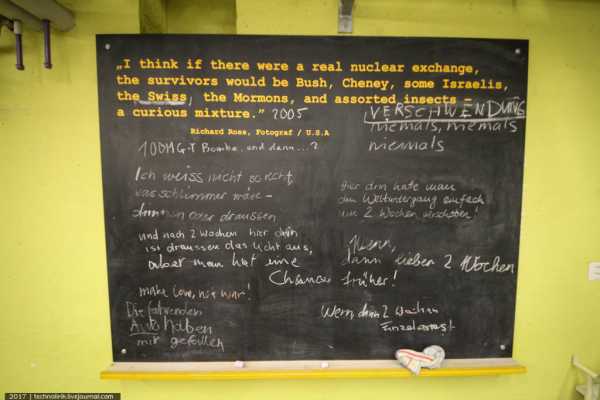 „I think if there were a real nuclear exchange,
the survivors would be Bush, Cheney, some Israelis,
the Swiss, the Mormons, and assorted insects –
a curious mixture.” 2005
Richard Ross, Fotograf / U.S.A
VERSCHWENDUNG
niemals, niemals
niemals
100M G-T Bombe, und dann...?
Ich weiss nicht so recht,
was schlimmer wäre –
drinnen oder draussen
und nach 2 Wochen hier drin
ist draussen das Licht aus,
aber man hat eine
Chance
make love, not war!
Die fahrenden
Auto haben
mir gefallen
Hier drin hätte man
den Weltuntergang einfach
um 2 Wochen verschoben!
Wenn,
dann lieber 2 Wochen
früher!
Wenn, dann 2 Wochen
Einzelarrest
2017 | technolirik.livejournal.com